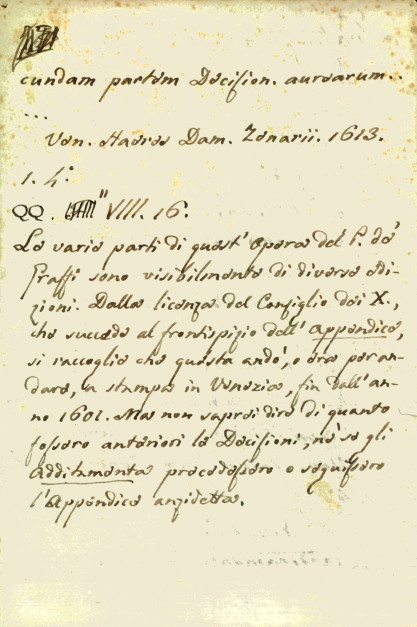 cundam partem Decision. aurearum..
...
Ven. Haeres Dam. Zenarii. 1613.
1. 4.°
QQ. VIII. 16.
Le varie parti di quest' Opera del P. de'
Graffi sono visibilmente di diverse edi-
zioni. Dalla licenza del Consiglio dei X.,
che succede al frontispizio dell' Appendice,
si raccoglie che questa andò, o era per an-
dare, a stampa in Venezia, fin dall' an-
no 1601. Ma non saprei dire di quanto
fossero anteriori le Decisioni, nè se gli
Additamenta precedessero o seguissero
l'Appendice anzidetta.